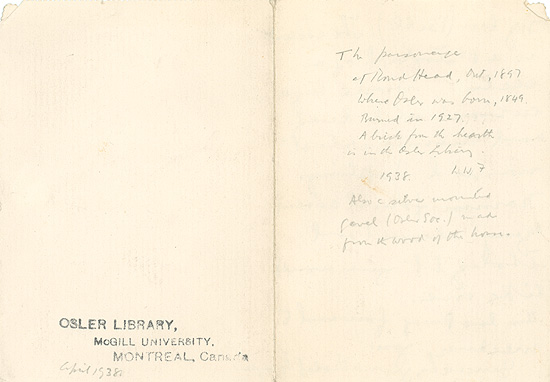 OSLER LIBRARY,
McGILL UNIVERSITY,
MONTREAL, Canada
April 1938.
The parsonage
at Bond Head, Ont., 1897
where Osler was born, 1849.
Burned in 1927.
A brick from the hearth
is in the Osler Library.
1938. WWF
Also a silver mounted
gavel (Osler Soc.) made
from the wood of the house.